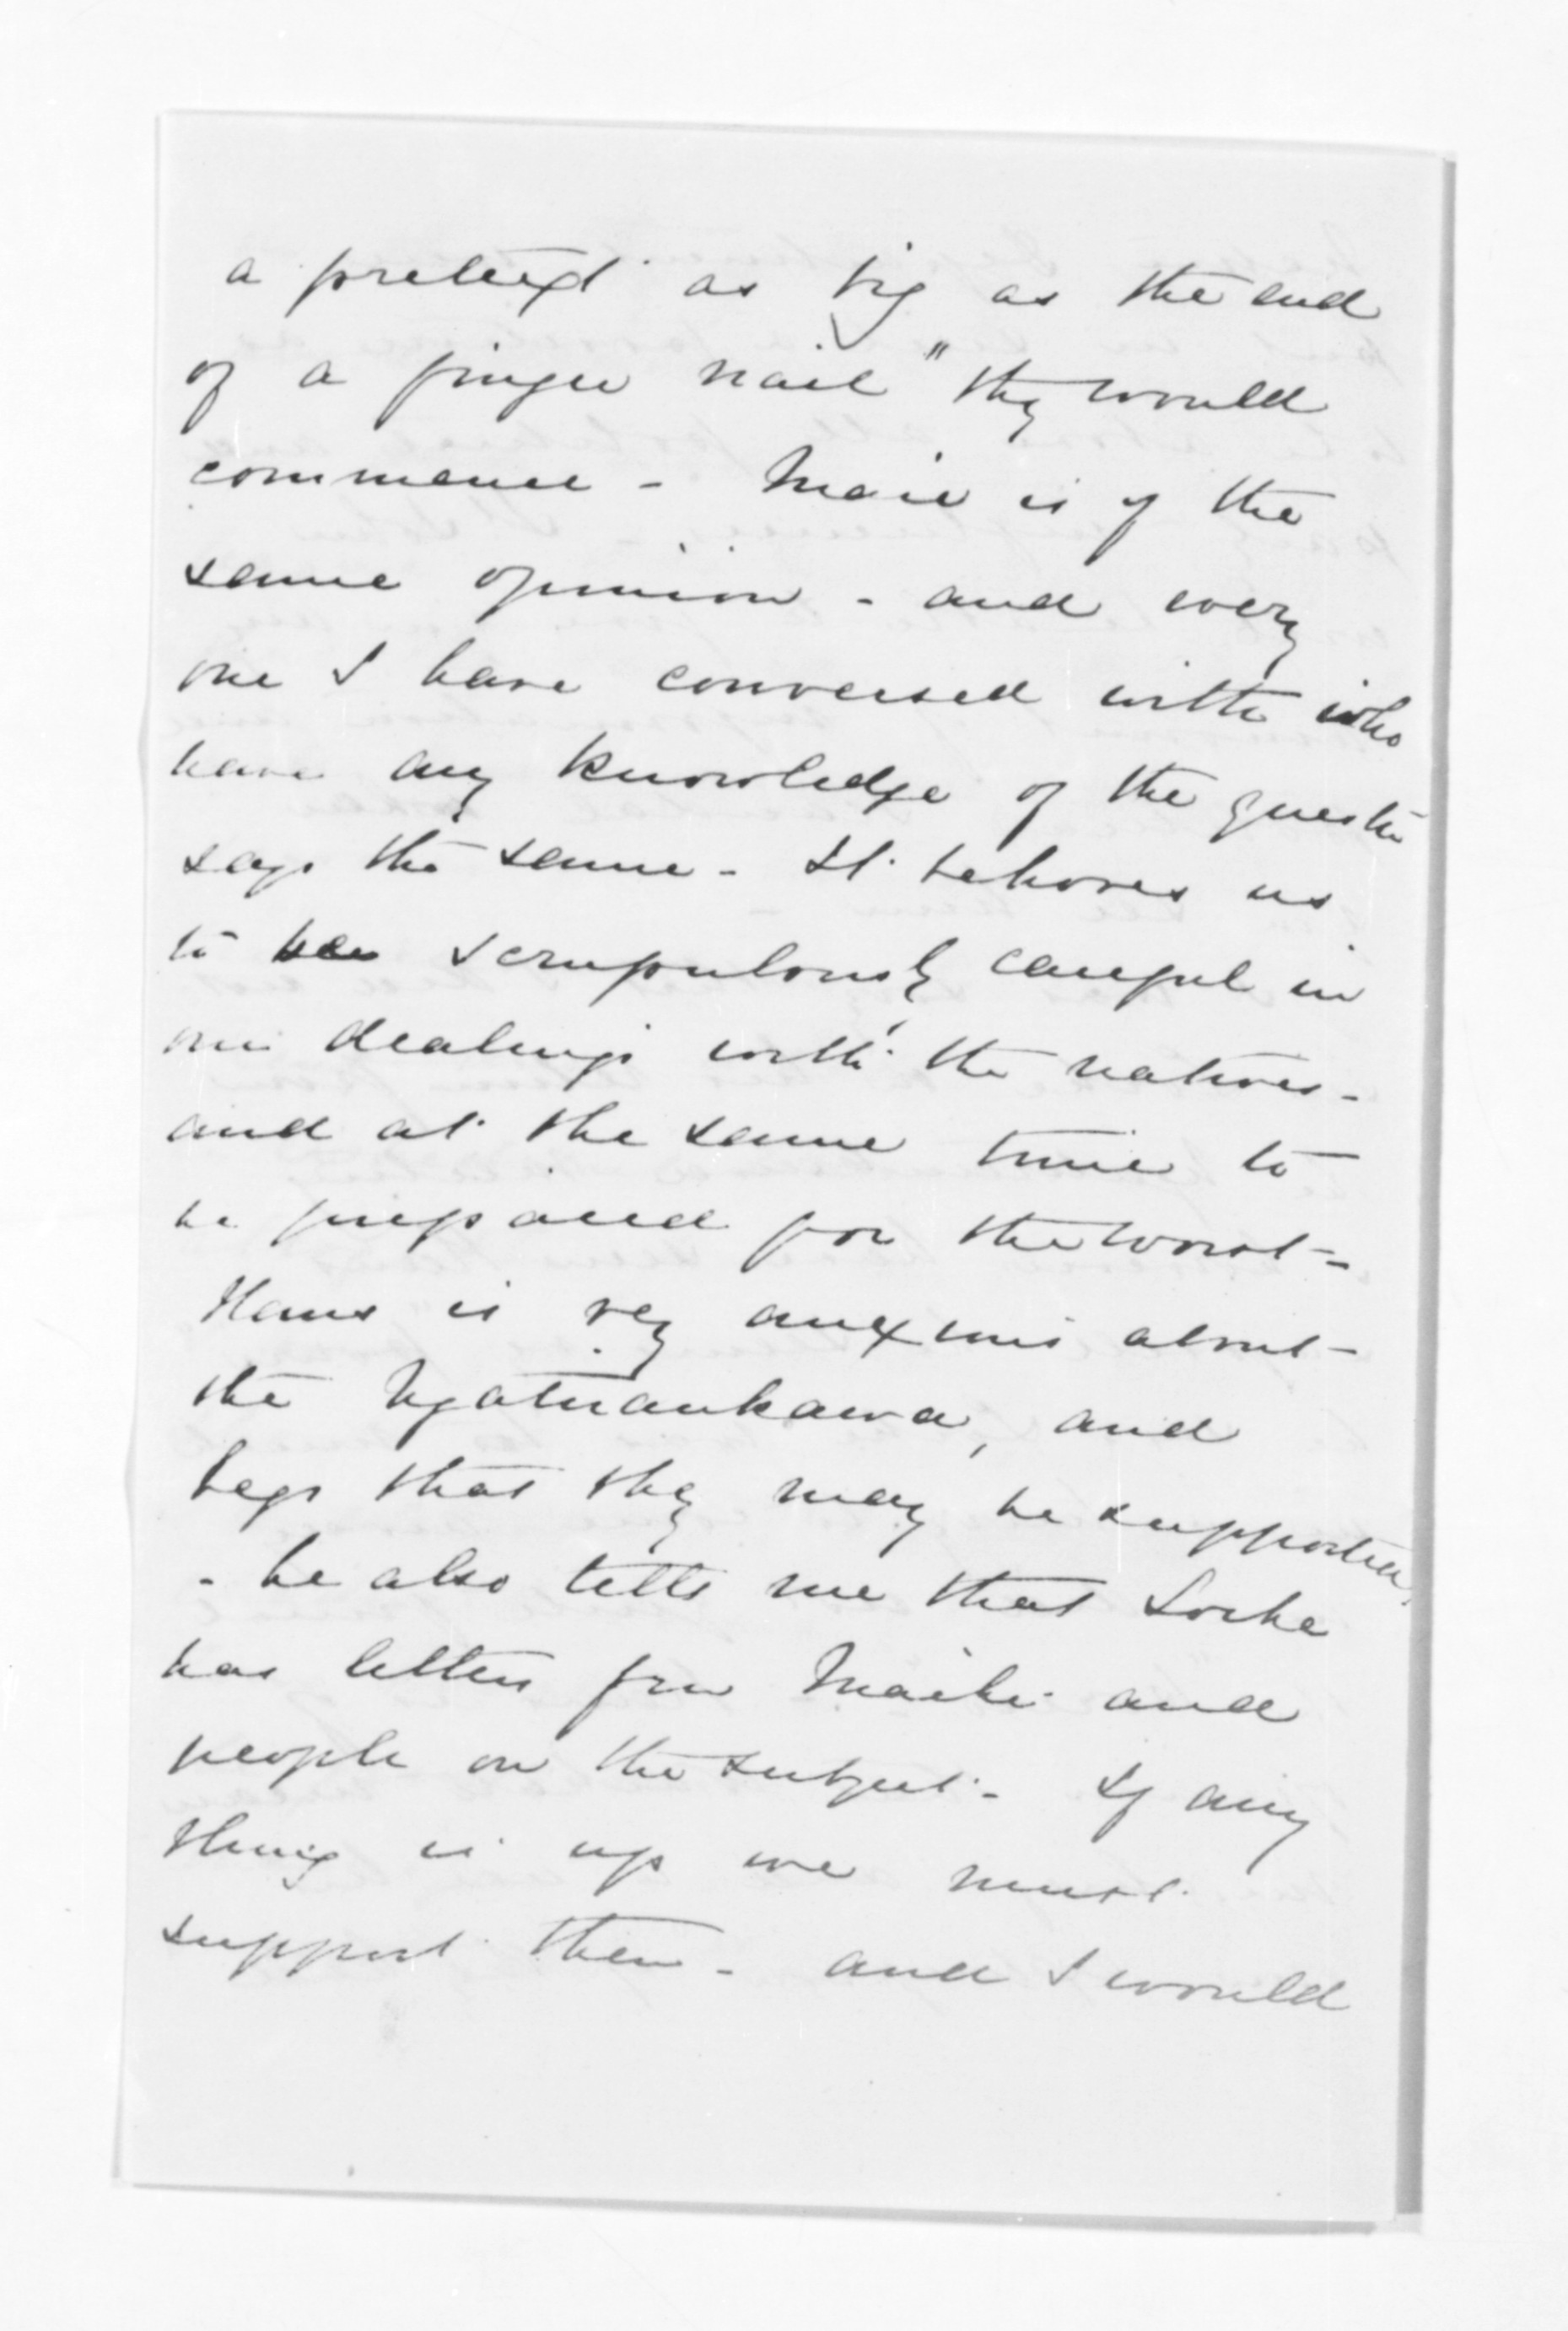 a pretext as big as the end
of a finger nail" they would
commence - Mair is of the
same opinion - and every
one I have conversed with who
have any knowledge of the questn
says the same - It behoves us
to be scrupulously careful in
our dealings with the natives -
and at the same time to
be prepared for the worst -
Hans is very anxious about
the Ngatiraukawa, and
begs that they may be supported,
- he also tells me that Locke
has letters from Maihi and
people on the subject - If any
thing is up we must
support them - and I would